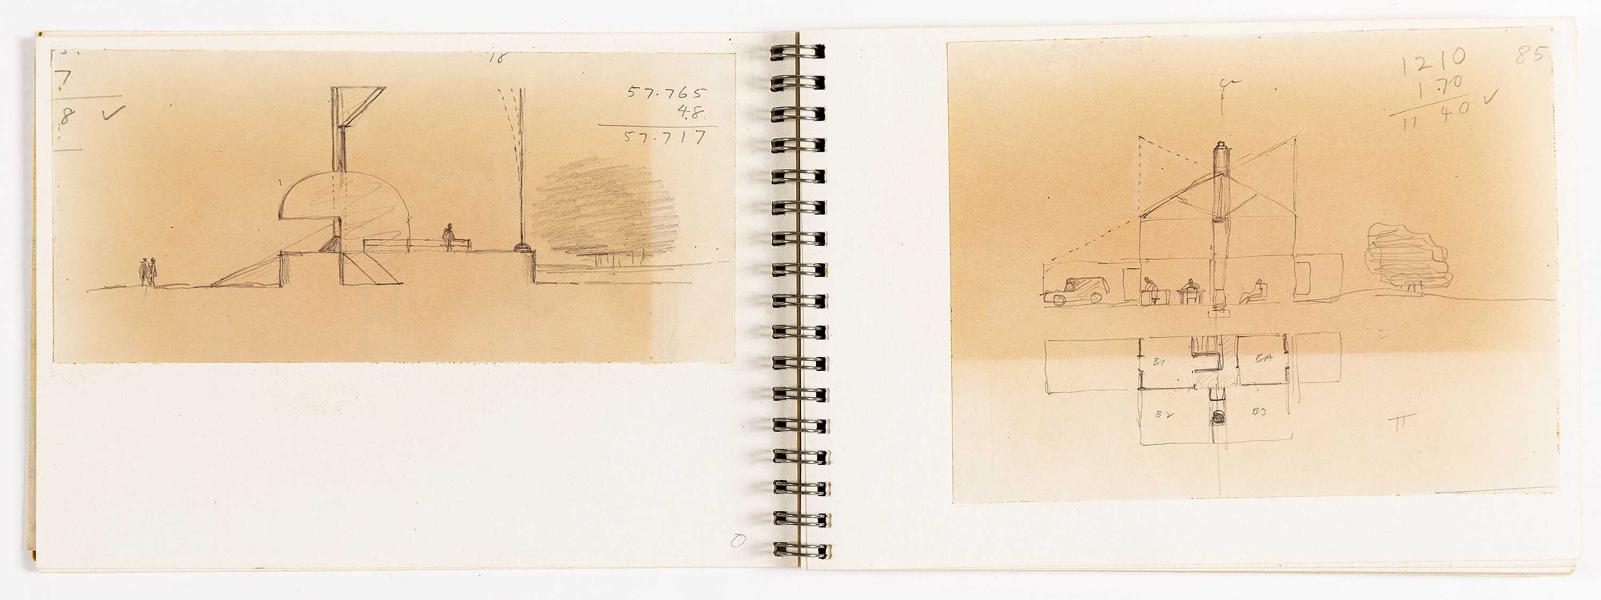 18
7
8 ✓
57.765
48.
57.717
0
1210
1.70
11 40 ✓
85
B1
BA
B2
B3